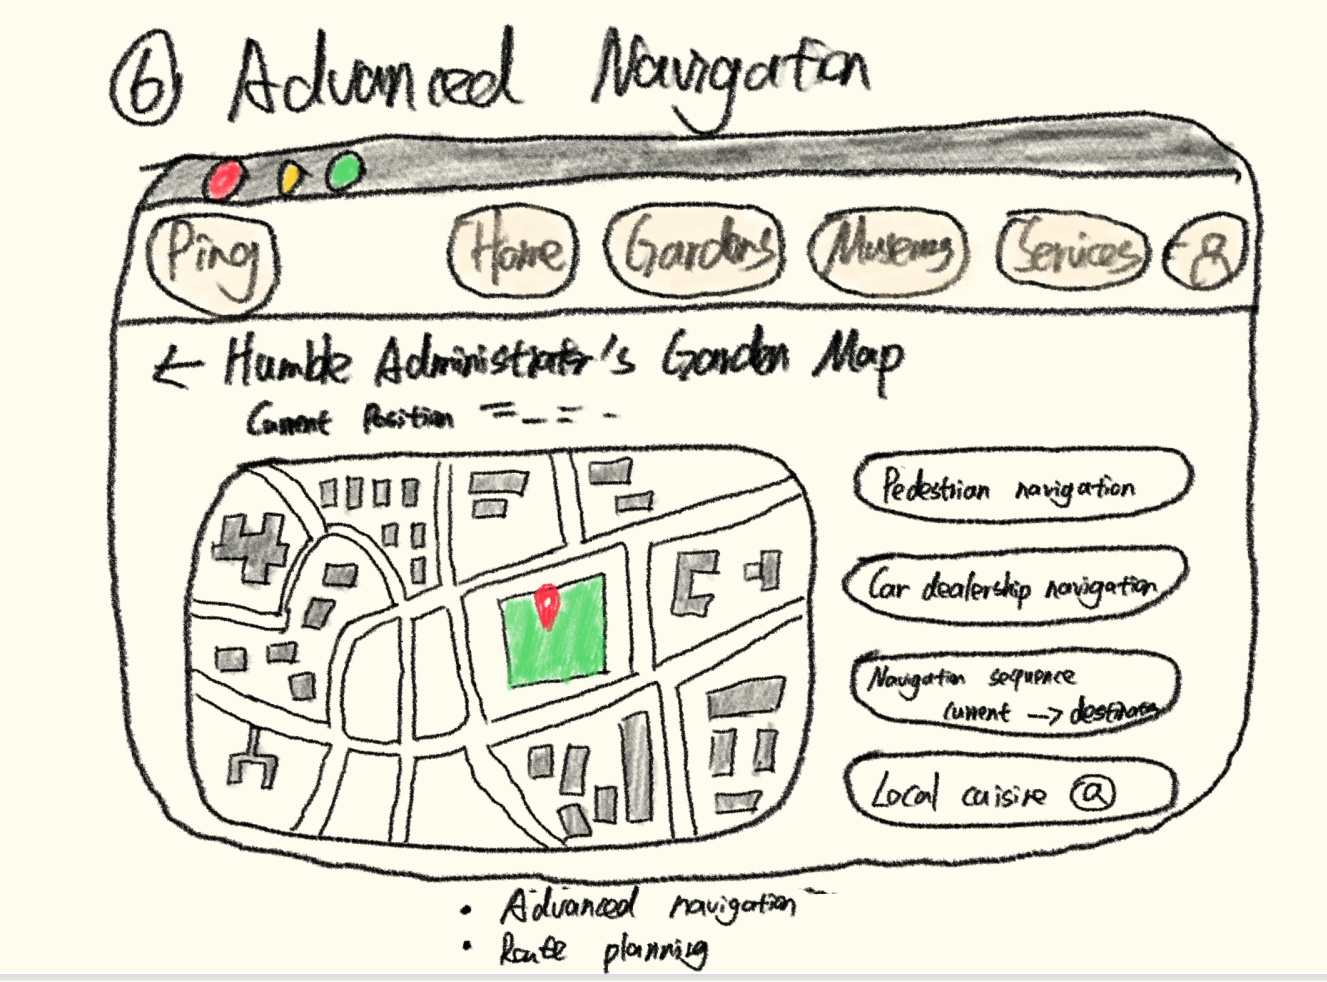 6 Advanced Navigation
Ping Home Gardens Museums Services
← Humble Administrator's Garden Map
Current Position
Pedestrian navigation
Car dealership navigation
Navigation sequence
current --> destination
Local caisire
• Advanced navigation
• Route planning